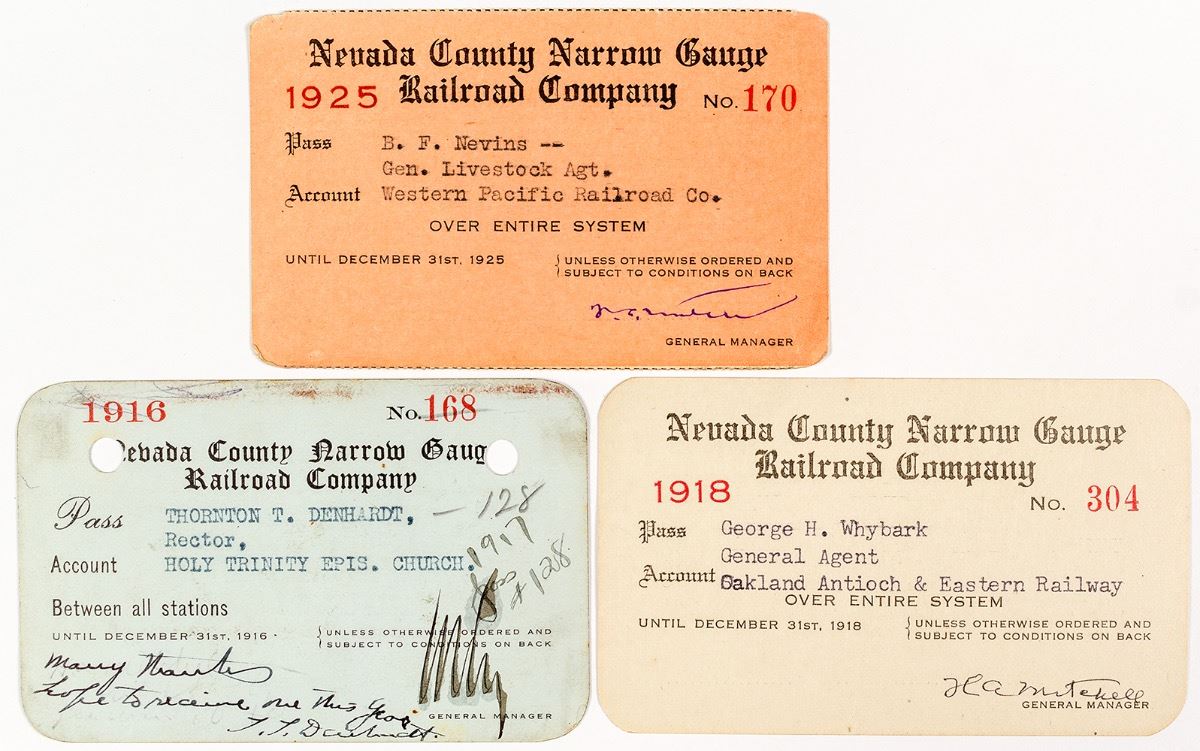 Nevada County Narrow Gauge
1925 Railroad Company No. 170
Pass B. F. Nevins --
Gen. Livestock Agt.
Account Western Pacific Railroad Co.
OVER ENTIRE SYSTEM
UNTIL DECEMBER 31ST, 1925 UNLESS OTHERWISE ORDERED AND
SUBJECT TO CONDITIONS ON BACK
GENERAL MANAGER
1916 No. 168
Nevada County Narrow Gaug
Railroad Company
Pass THORNTON T. DENHARDT, — 128
Rector,
1917
Account HOLY TRINITY EPIS. CHURCH.
#128
Between all stations
UNTIL DECEMBER 31ST, 1916 UNLESS OTHERWISE ORDERED AND
SUBJECT TO CONDITIONS ON BACK
Many thanks
hope to receive one this year
T. T. Denhardt.
GENERAL MANAGER
Nevada County Narrow Gauge
Railroad Company
1918 No. 304
Pass George H. Whybark
General Agent
Account Oakland Antioch & Eastern Railway
OVER ENTIRE SYSTEM
UNTIL DECEMBER 31ST, 1918 UNLESS OTHERWISE ORDERED AND
SUBJECT TO CONDITIONS ON BACK
H A Mitchell
GENERAL MANAGER